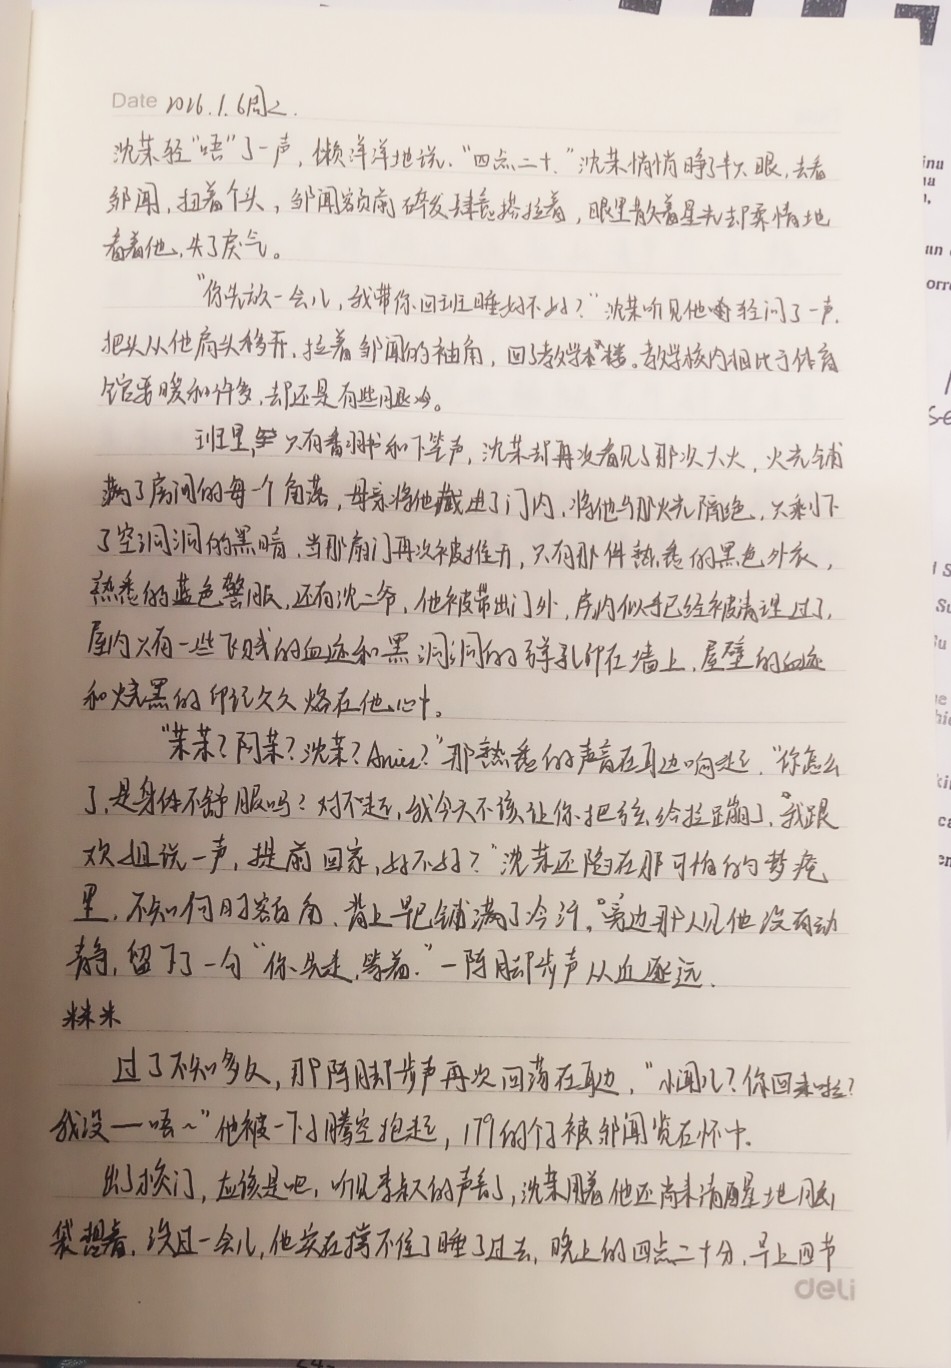 Date 2026.1.6周二.
沈棻轻“唔”了一声，懒洋洋地说，“四点二十.”沈棻悄悄睁了半只眼，去看
邹闻，扭着个头，邹闻额前碎发肆意搭拉着，眼里散着星光却柔情地
看着他，失了戾气。
“你先放一会儿，我带你回班睡好不好？”沈棻听见他轻问了一声，
把头从他肩头移开，拉着邹闻的袖角，回了教学楼。教学楼内相比于体育
馆要暖和许多，却还是有些阴冷。
班里，只有翻书和下笔声，沈棻却再次看见了那次大火，火光铺
满了房间的每一个角落，母亲将他藏进了门内，将他与那火光隔绝，只剩下
了空洞洞的黑暗，当那扇门再次被推开，只有那件熟悉的黑色外衣，
熟悉的蓝色警服，还有沈二爷，他被带出门外，房内似乎已经被清理过了，
屋内只有一些飞溅的血迹和黑洞洞的弹孔印在墙上，屋壁的血迹
和烧黑的印记久久烙在他心中。
“棻棻？阿棻？沈棻？Aries？”那熟悉的声音在耳边响起，“你怎么
了，是身体不舒服吗？对不起，我今天不该让你把弦给拉蹦了，我跟
欢姐说一声，提前回家，好不好？”沈棻还陷在那可怕的梦魇
里，不知何时额角、背上早已铺满了冷汗。旁边那人见他没有动
静，留下了一句“你先走，等着.”一阵脚步声从近逐远.
米米米
过了不知多久，那阵脚步声再次回荡在耳边，“小闻儿？你回来啦？
我没——唔~”他被一下子腾空抱起，179的个子被邹闻览在怀中.
出了校门，应该是吧，听见李叔的声音了，沈棻用着他还尚未清醒地脑
袋想着，没过一会儿，他实在撑不住了睡了过去，晚上的四点二十分，早上四节
deli